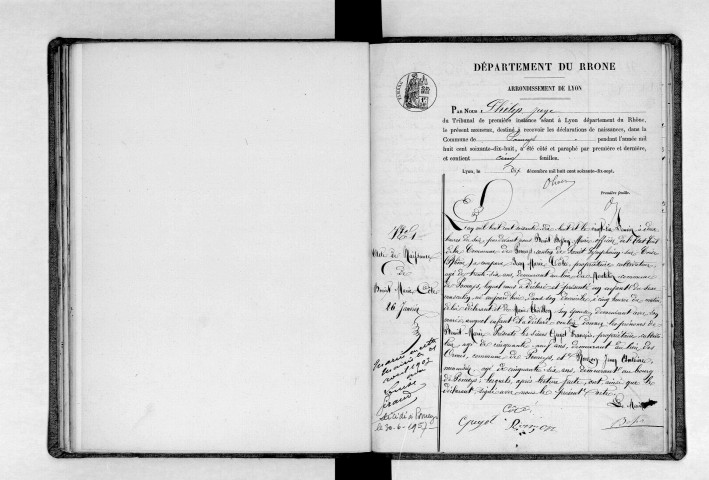 DÉPARTEMENT DU RHONE
ARRONDISSEMENT DE LYON
PAR NOUS Philip juge
du Tribunal de première instance séant à Lyon département du Rhône,
le présent registre, destiné à recevoir les déclarations de naissances, dans la
Commune de Pomeys pendant l'année mil
huit cent soixante-dix-huit, a été coté et paraphé par première et dernière,
et contient cinq feuilles.
Lyon, le dix décembre mil huit cent soixante-dix-sept.
Première feuille.
N° 1
Acte de Naissance
de
Benoit Marie Côte
26 Janvier
Marié en cette
mairie le 21
avril 1907
avec
Décédé à Pomeys
le 30-6-1957
L'an mil huit cent soixante dix huit et le vingt six Janvier à deux
heures du soir, pardevant nous Benoit Maire officier de l'état civil
de la Commune de Pomeys canton de Saint Symphorien sur Coise
(Rhône) a comparu Jean Marie Côte, propriétaire cultivateur
âgé de trente six ans, demeurant au lieu du commune
de Pomeys, lequel nous a déclaré et présenté un enfant du sexe
masculin, né aujourd'hui dans son domicile à cinq heures du matin
de lui déclarant et de Marie son épouse, demeurant avec lui
auquel enfant il a déclaré vouloir donner les prénoms de
Benoit Marie. Présents les sieurs Guyot François, propriétaire cultiva
teur âgé de cinquante neuf ans, demeurant au lieu des
Ormes, commune de Pomeys, et Jean Antoine
âgé de cinquante six ans, demeurant au bourg
de Pomeys, lesquels, après lecture faite, ont ainsi que le
déclarant signé avec nous le présent acte.
Le Maire
Côte
Guyot